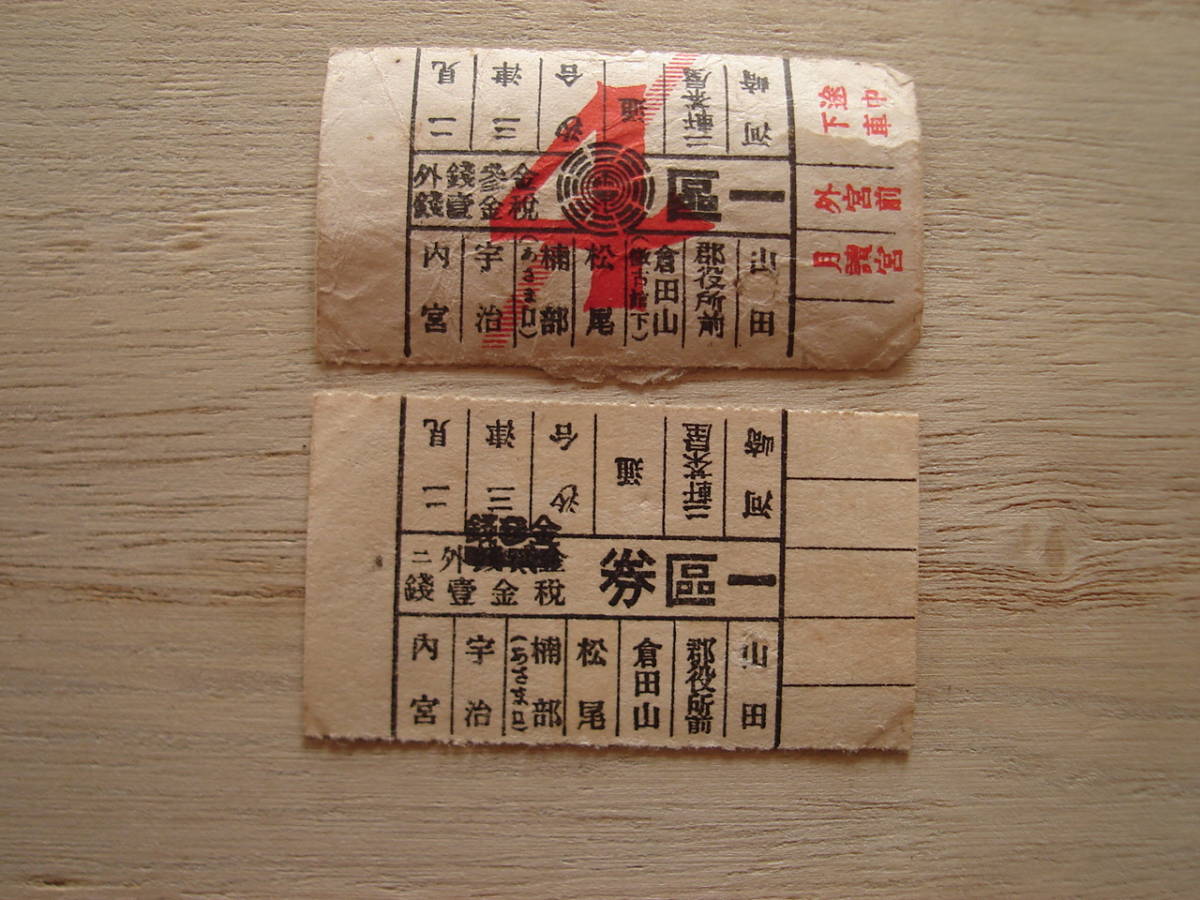 河崎
二軒茶屋
通
汐合
三津
二見
一區
金參錢外
税金壹錢
山田
郡役所前
倉田山
(徴古館下)
松尾
楠部
(あさま口)
宇治
内宮
4
途中
下車
外宮前
月讀宮
河崎
二軒茶屋
通
汐合
三津
二見
一區券
外二
税金壹錢
山田
郡役所前
倉田山
松尾
楠部
(あさま口)
宇治
内宮